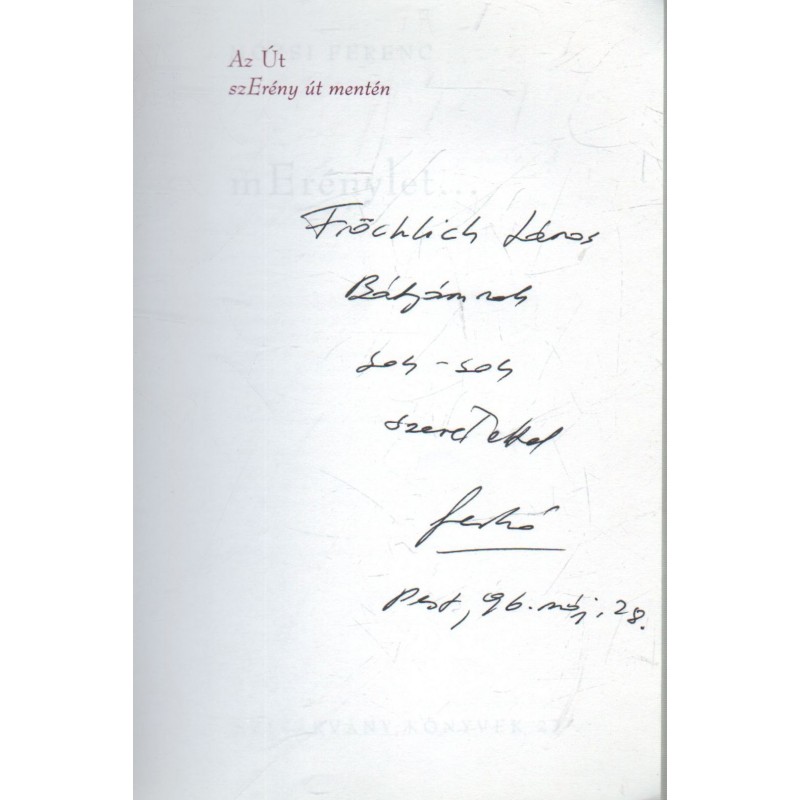 Az Út
szErény út mentén
mErénylet...
Fröchlich János
Bátyámnak
sok-sok
szeretettel
Ferkó
Pest, 96. máj. 28.